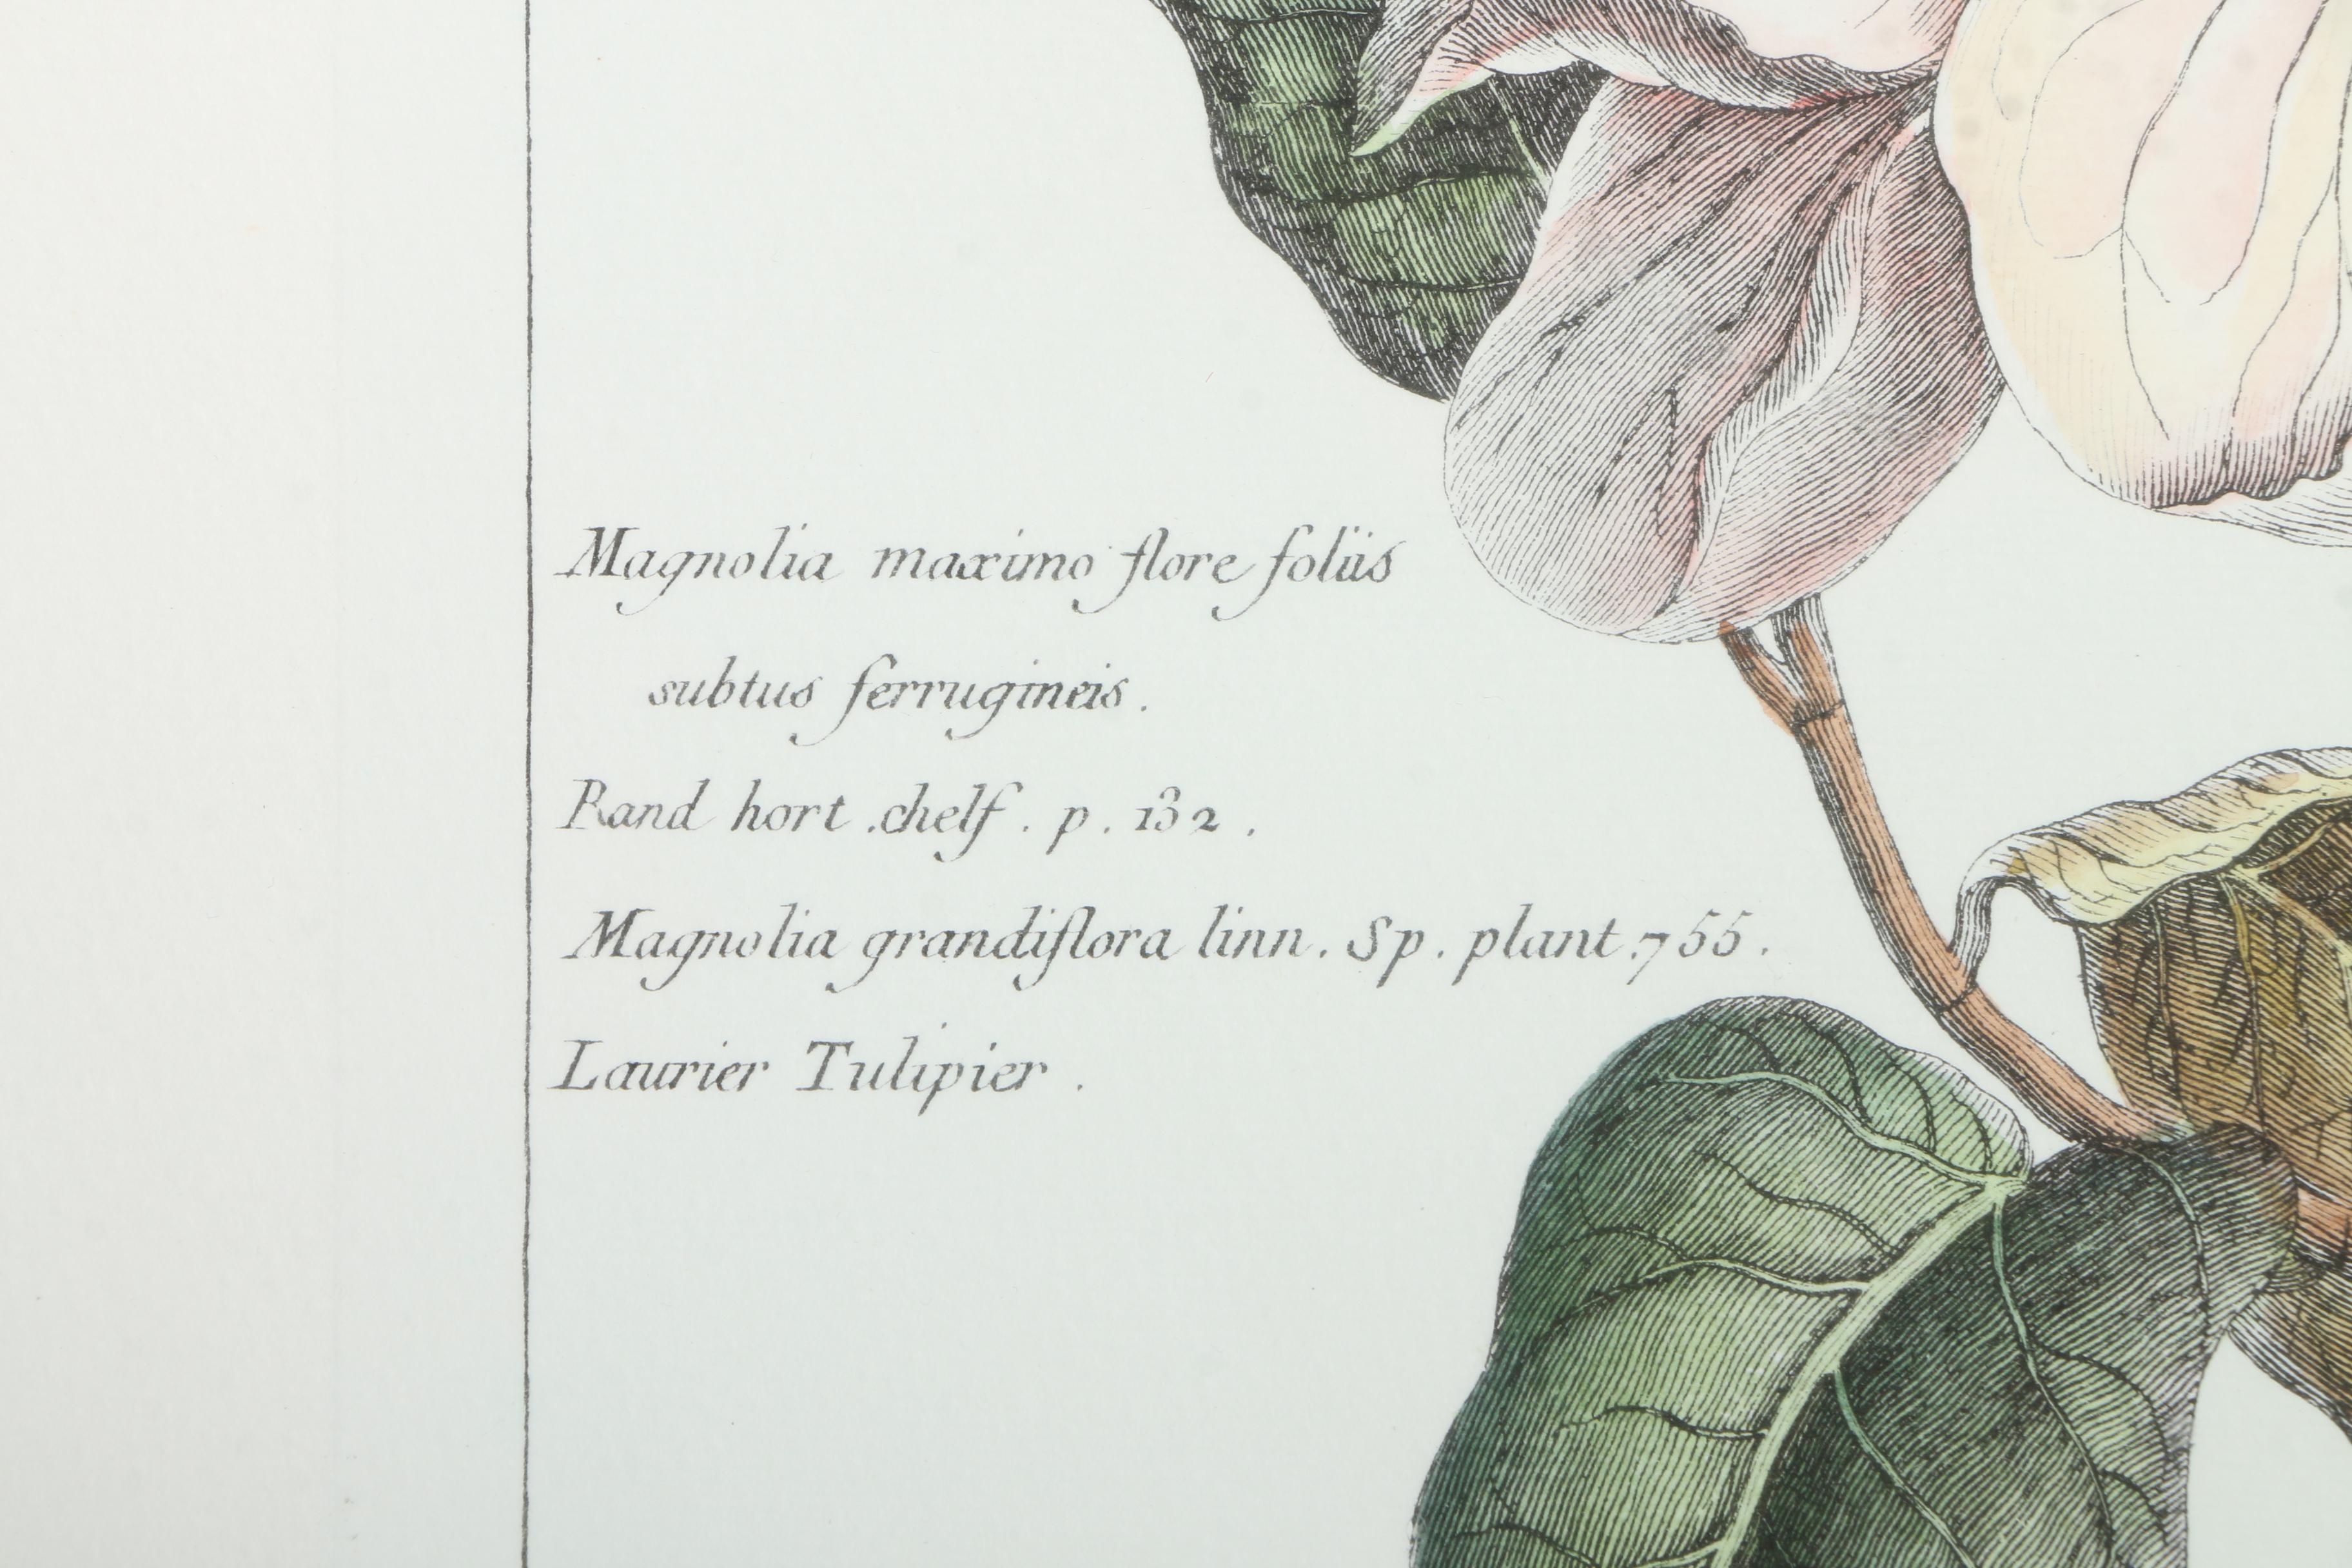 Magnolia maximo flore foliis
subtus ferrugineis.
Rand hort . chelf . p . 132 .
Magnolia grandiflora linn . Sp . plant . 755 .
Laurier Tulipier .